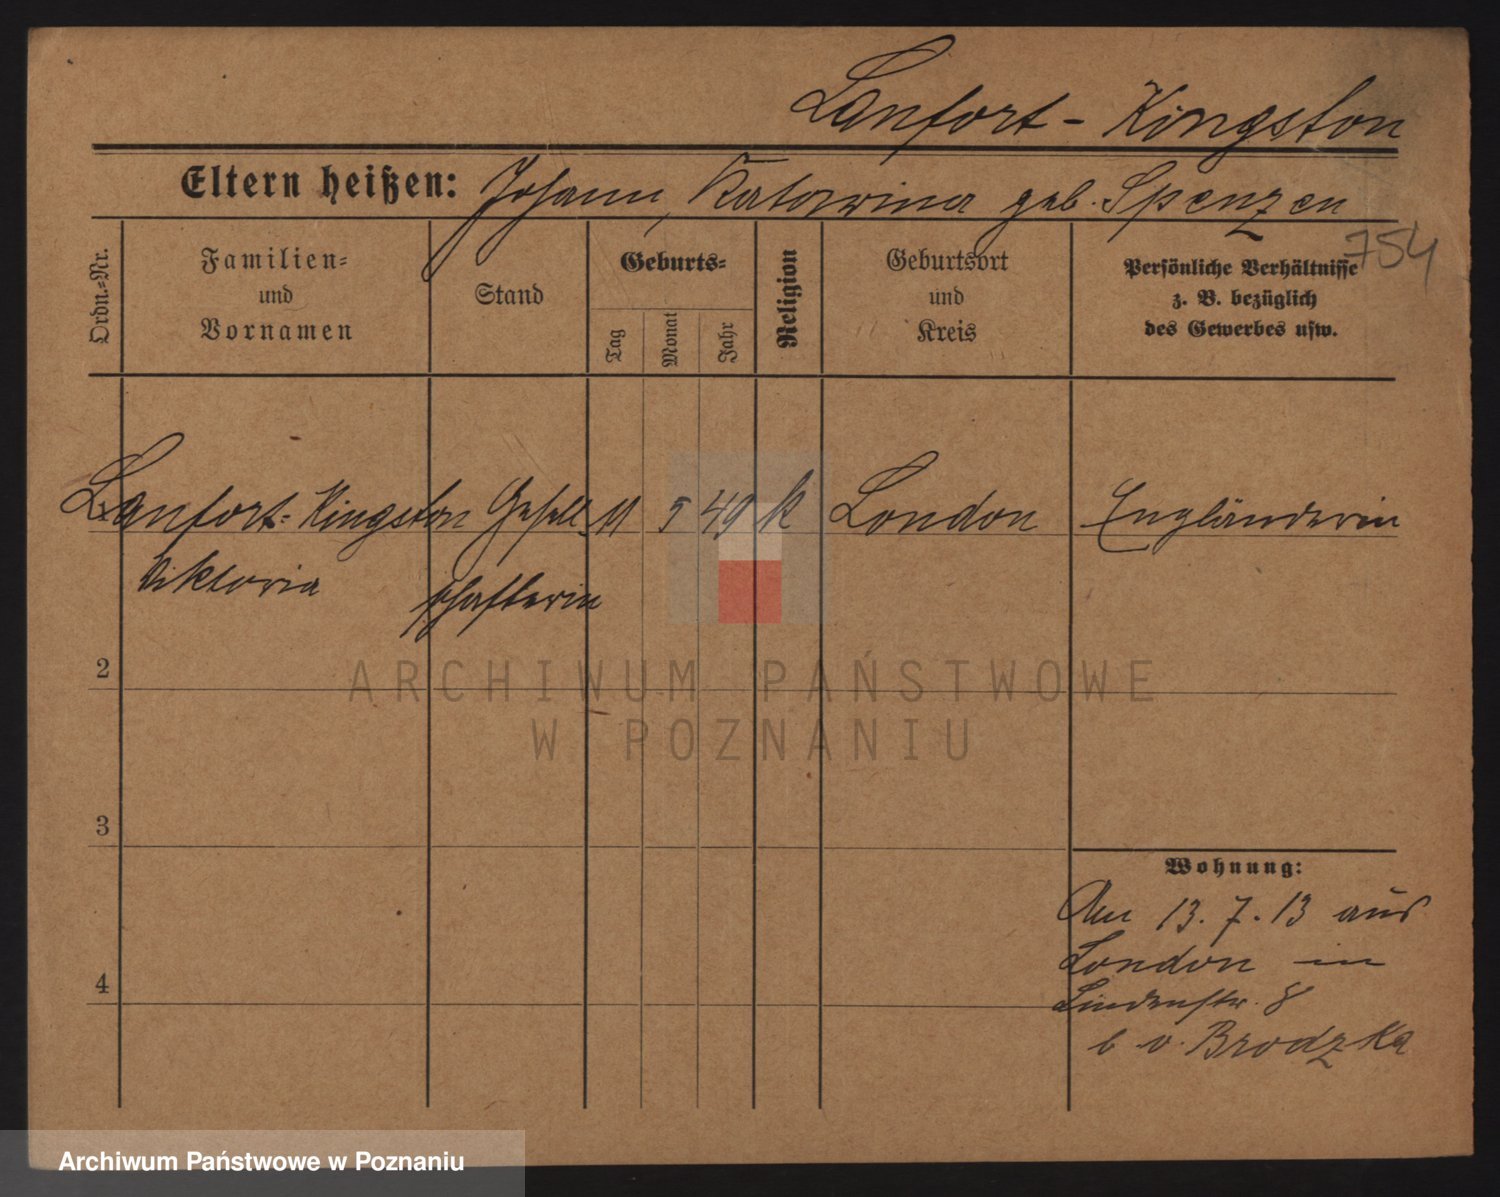 Lanfort-Kingston
Eltern heißen: Johann, Katarzina geb. Spenzen
754
Ordn.-Nr.
Familien-
und
Vornamen
Stand
Geburts-
Tag
Monat
Jahr
Religion
Geburtsort
und
Kreis
Persönliche Verhältnisse
z. B. bezüglich
des Gewerbes usw.
1 Lanfort-Kingston Gesell- 11 5 49 k London Engländerin
Viktoria schafterin
2
3
4
Wohnung:
Am 13.7.13 aus
London in
Lindenstr. 8
b v. Brodzka
ARCHIWUM PAŃSTWOWE
W POZNANIU
Archiwum Państwowe w Poznaniu